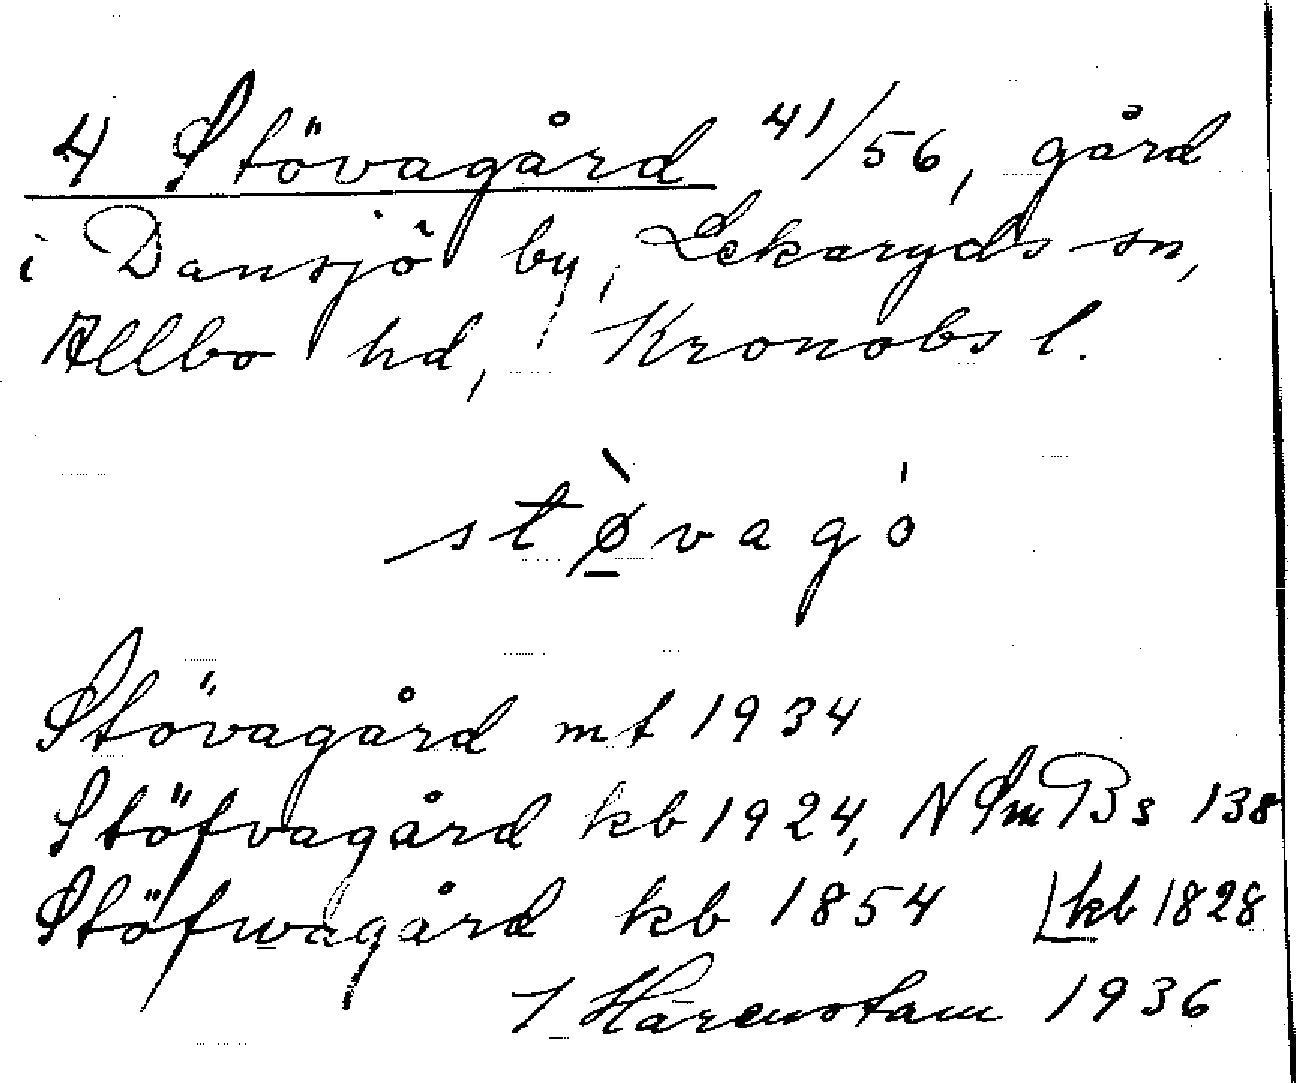 4 Stövagård 41/56, gård
i Dansjö by, Lekaryds sn,
Allbo hd, Kronobs l.
stø̀vagó
Stövagård mt 1934
Stöfvagård kb 1924, N Sm Bs 138
Stöfwagård kb 1854 kb 1828
1936